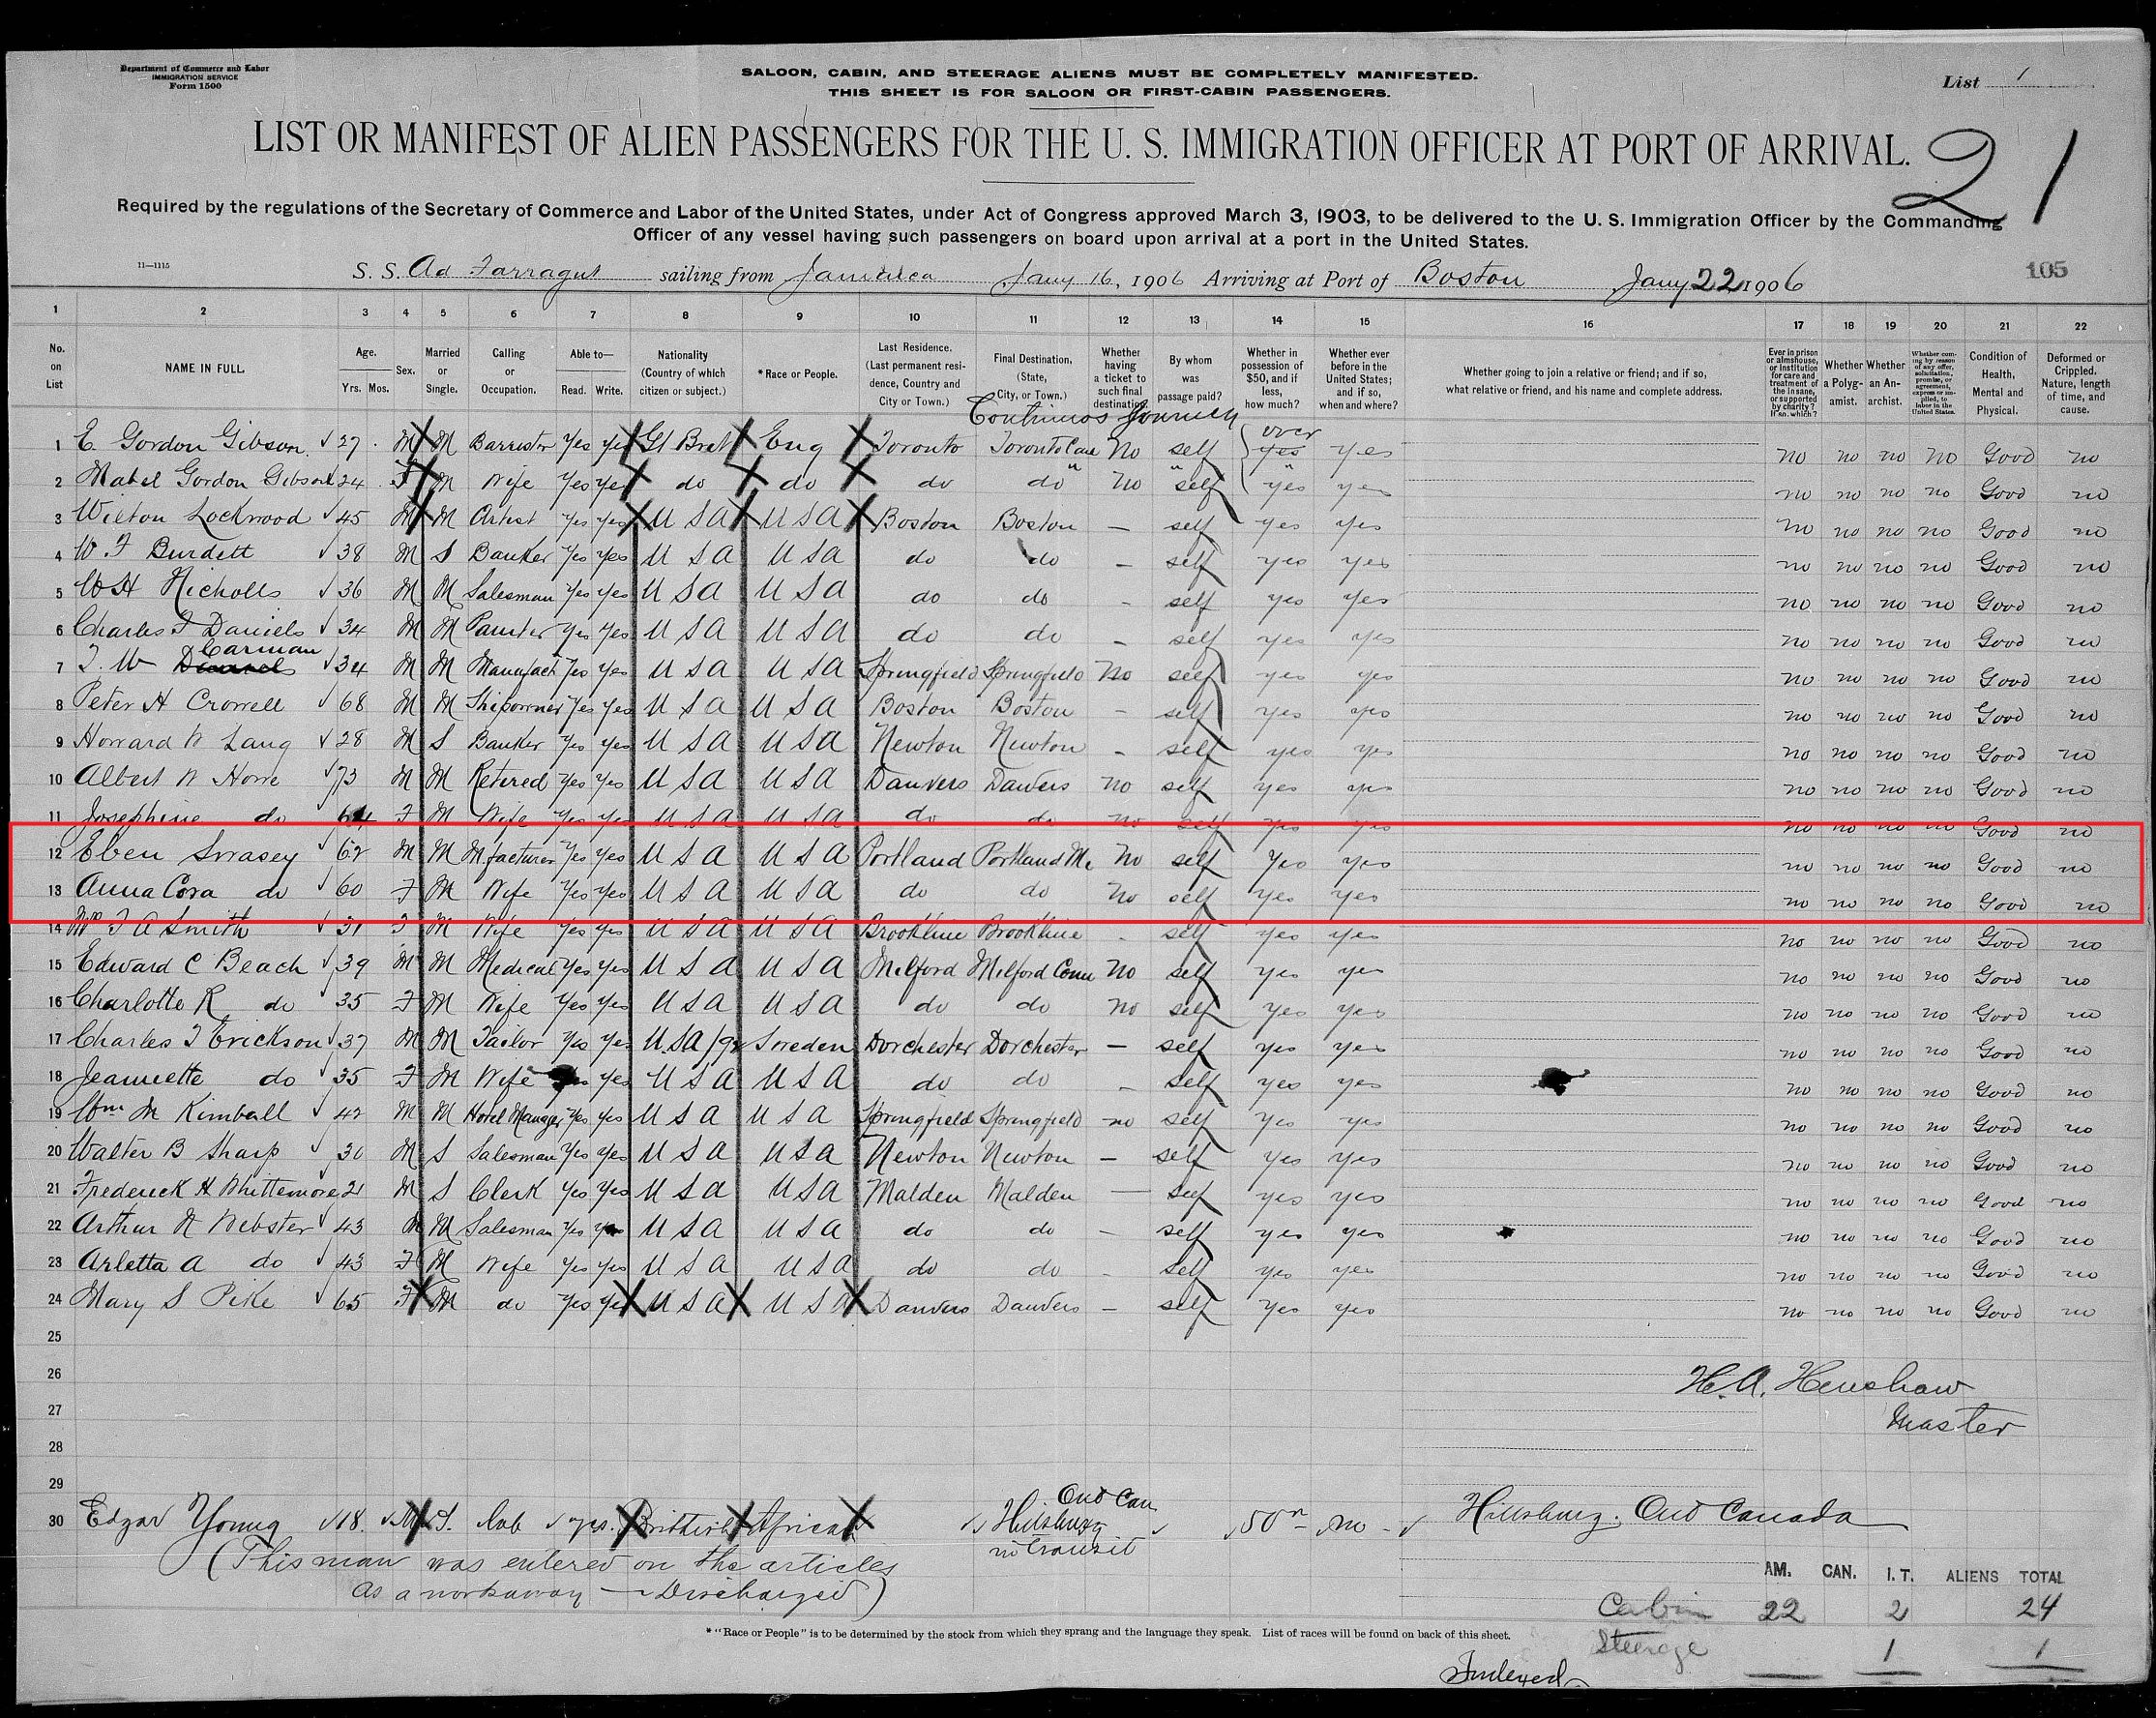 Department of Commerce and Labor
IMMIGRATION SERVICE
Form 1500
SALOON, CABIN, AND STEERAGE ALIENS MUST BE COMPLETELY MANIFESTED.
THIS SHEET IS FOR SALOON OR FIRST-CABIN PASSENGERS.
List 1
LIST OR MANIFEST OF ALIEN PASSENGERS FOR THE U. S. IMMIGRATION OFFICER AT PORT OF ARRIVAL.
21
Required by the regulations of the Secretary of Commerce and Labor of the United States, under Act of Congress approved March 3, 1903, to be delivered to the U. S. Immigration Officer by the Commanding
Officer of any vessel having such passengers on board upon arrival at a port in the United States.
11—1115
S. S. Ad Farragut sailing from Jamaica Jany 16, 1906 Arriving at Port of Boston Jany 22 1906
105
1 2 3 4 5 6 7 8 9 10 11 12 13 14 15 16 17 18 19 20 21 22
No. on List
NAME IN FULL.
Age. Yrs. Mos.
Sex.
Married or Single.
Calling or Occupation.
Able to— Read. Write.
Nationality (Country of which citizen or subject.)
*Race or People.
Last Residence. (Last permanent residence, Country and City or Town.)
Final Destination. (State, City, or Town.)
Whether having a ticket to such final destination.
By whom was passage paid?
Whether in possession of $50, and if less, how much?
Whether ever before in the United States; and if so, when and where?
Whether going to join a relative or friend; and if so, what relative or friend, and his name and complete address.
Ever in prison or almshouse, or institution for care and treatment of the insane, or supported by charity? If so, which?
Whether a Polygamist.
Whether an Anarchist.
Whether coming by reason of any offer, solicitation, promise, or agreement, express or implied, to labor in the United States.
Condition of Health, Mental and Physical.
Deformed or Crippled. Nature, length of time, and cause.
Continuos Journey
over
1 E. Gordon Gibson 27 M M Barrister Yes yes Gt Brit Eng Toronto Toronto Can No self yes yes no no no no Good no
2 Mabel Gordon Gibson 24 F M Wife Yes yes do do do do no self yes yes no no no no Good no
3 Wilton Lockwood 45 M M Artist Yes yes U S A U S A Boston Boston — self yes yes no no no no Good no
4 W F Burdett 38 M S Banker Yes yes U S A U S A do do — self yes yes no no no no Good no
5 W H Nicholls 36 M M Salesman Yes yes U S A U S A do do - self yes yes no no no no Good no
6 Charles F Daniels 34 M M Painter Yes yes U S A U S A do do - self yes yes no no no no Good no
7 T. W Carman 34 M M Manufact Yes yes U S A U S A Springfield Springfield No self yes yes no no no no Good no
8 Peter H Crowell 68 M M Shipowner Yes yes U S A U S A Boston Boston - self yes yes no no no no Good no
9 Howard W Lang 28 M S Banker Yes yes U S A U S A Newton Newton - self yes yes no no no no Good no
10 Albert W Howe 73 M M Retired Yes yes U S A U S A Danvers Danvers no self yes yes no no no no Good no
11 Josephine do 64 F M Wife Yes yes U S A U S A do do no self yes yes no no no no Good no
12 Eben Swasey 62 M M Mfacturer Yes yes U S A U S A Portland Portland Me No self Yes yes no no no no Good no
13 Anna Cora do 60 F M Wife Yes yes U S A U S A do do No self yes yes no no no no Good no
14 Mrs F A Smith 31 F M Wife Yes yes U S A U S A Brookline Brookline - self yes yes no no no no Good no
15 Edward C Beach 39 M M Medical Yes yes U S A U S A Milford Milford Conn No self yes yes no no no no Good no
16 Charlotte R do 35 F M Wife Yes yes U S A U S A do do no self yes yes no no no no Good no
17 Charles T Erickson 37 M M Tailor Yes yes U.S.A Sweden Dorchester Dorchester — self yes yes no no no no Good no
18 Jeannette do 35 F M Wife yes U S A U S A do do - self yes yes no no no no Good no
19 Wm M Kimball 42 M M Hotel Manager Yes yes U S A U S A Springfield Springfield no self yes yes no no no no Good no
20 Walter B Sharp 30 M S Salesman Yes yes U S A U S A Newton Newton — self yes yes no no no no Good no
21 Frederick H Whittemore 21 M S Clerk Yes yes U S A U S A Malden Malden — self yes yes no no no no Good no
22 Arthur N Webster 43 M M Salesman Yes yes U S A U S A do do - self yes yes no no no no Good no
23 Arletta A do 43 F M Wife Yes yes U S A U S A do do - self yes yes no no no no Good no
24 Mary S Pike 65 F M do Yes yes U S A U S A Danvers Danvers — self yes yes no no no no Good no
25
26
H. A. Henshaw
27
Master
28
29
Ont Can
30 Edgar Young 18. M S. lab yes. British African Hillsburg 50 no Hillsburg. Ont Canada
in transit
(This man was entered on the articles
as a workaway — Discharged)
AM. CAN. I. T. ALIENS TOTAL
Cabin 22 2 24
Steerage 1 1
* "Race or People" is to be determined by the stock from which they sprang and the language they speak. List of races will be found on back of this sheet.
Indexed